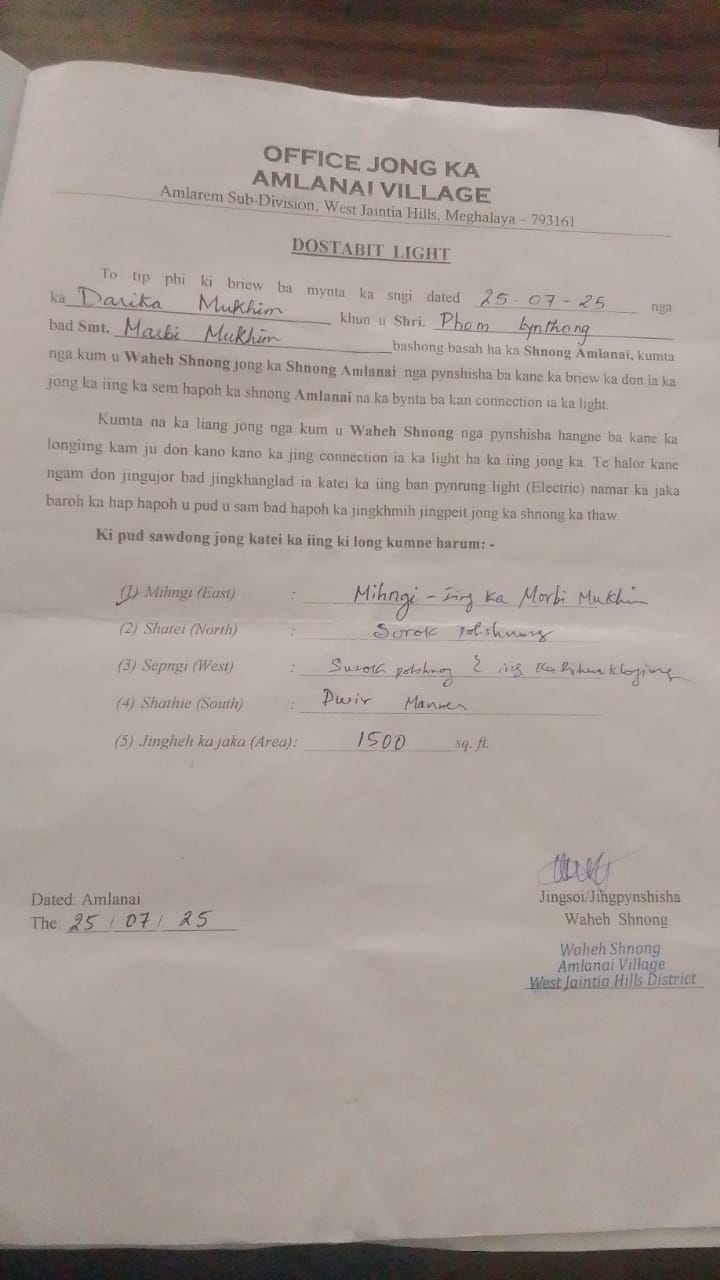 OFFICE JONG KA
AMLANAI VILLAGE
Amlarem Sub-Division, West Jaintia Hills, Meghalaya – 793161
DOSTABIT LIGHT
To tip phi ki briew ba mynta ka sngi dated 25-07-25 nga
ka Darika Mukhim khun u Shri. Phom Lynthong
bad Smt. Marbi Mukhim bashong basah ha ka Shnong Amlanai, kumta
nga kum u Waheh Shnong jong ka Shnong Amlanai nga pynshisha ba kane ka briew ka don la ka
jong ka iing ka sem hapoh ka shnong Amlanai na ka bynta ba kan connection ia ka light.
Kumta na ka liang jong nga kum u Waheh Shnong nga pynshisha hangne ba kane ka
longiing kam ju don kano kano ka jing connection ia ka light ha ka iing jong ka. Te halor kane
ngam don jingujor bad jingkhanglad ia katei ka iing ban pynrung light (Electric) namar ka jaka
baroh ka hap hapoh u pud u sam bad hapoh ka jingkhmih jingpeit jong ka shnong ka thaw.
Ki pud sawdong jong katei ka iing ki long kumne harum: -
(1) Mihngi (East) : Mihngi - Iing Ka Morbi Mukhim
(2) Shatei (North) : Surok
(3) Sepngi (West) : Surok & iing Ka
(4) Shathie (South) : Dwir
(5) Jingheh ka jaka (Area): 1500 sq. ft.
Jingsoi/Jingpynshisha
Waheh Shnong
Dated: Amlanai
The: 25 / 07 / 25
Waheh Shnong
Amlanai Village
West Jaintia Hills District